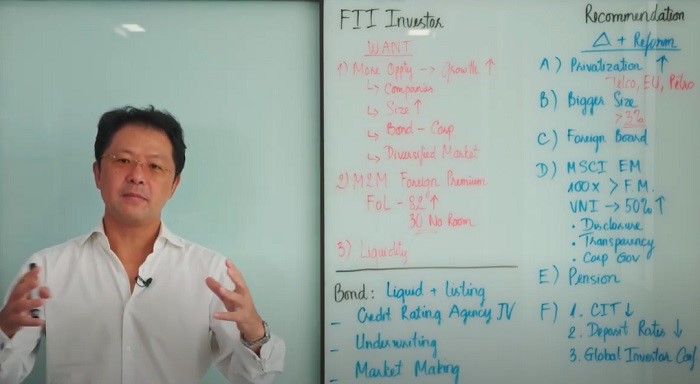 FII Investor
WANT
1) More Oppty --> Growth ↑
↳ Companies
↳ Size ↑
↳ Bond - Corp
↳ Diversified Market
2) M2M Foreign Premium
FOL - 82 ↑
30 No Room
3) Liquidity
Bond: Liquid + Listing
- Credit Rating Agency JV
- Underwriting
- Market Making
Recommendation
△ + Reform
A) Privatization ↑
- Telco, EU, Petro
B) Bigger Size
> 3%
C) Foreign Board
D) MSCI EM
100x > F.M.
VNI → 50% ↑
• Disclosure
• Transparency
• Corp Gov
E) Pension
F) 1. CIT ↓
2. Deposit Rates ↓
3. Global Investor Conf